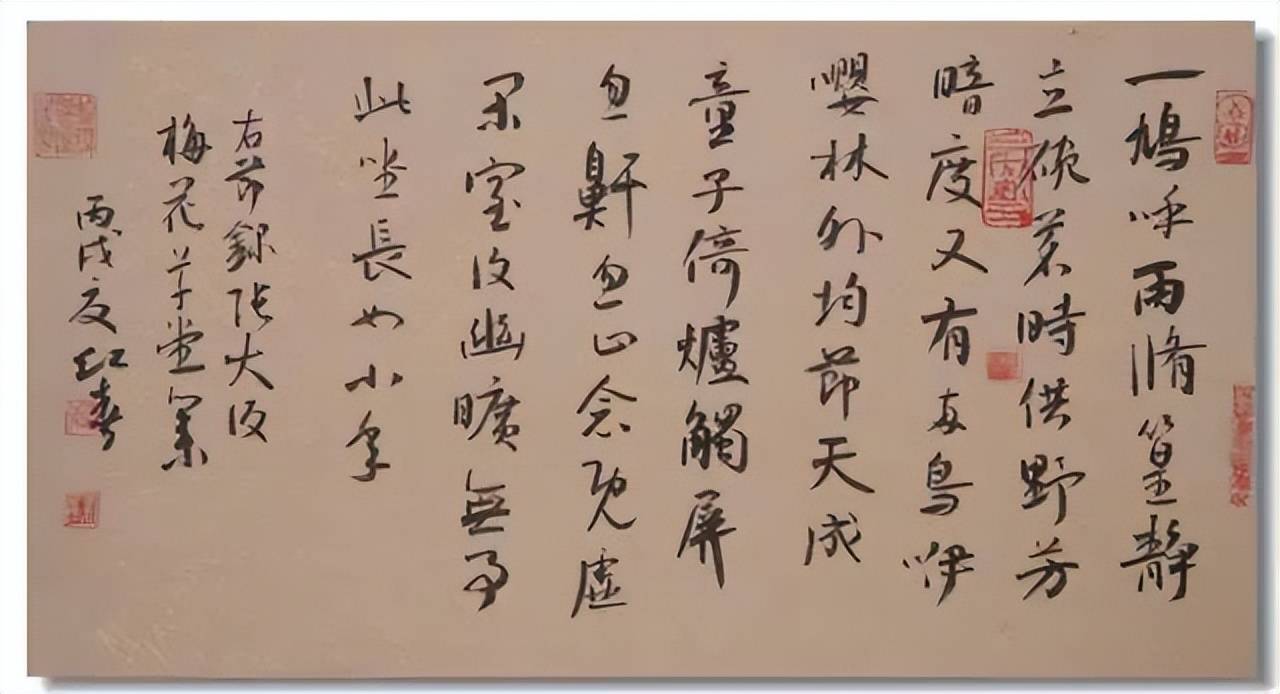 一鳩呼雨脩篁靜
立碗茗時供野芳
暗度又有兩鳥咿
嚶林外均節天成
童子倚爐觸屏
忽鼾忽止念既虛
閑室復幽曠無事
此坐長如小年
右節錄張大復
梅花草堂
丙戌夏紅